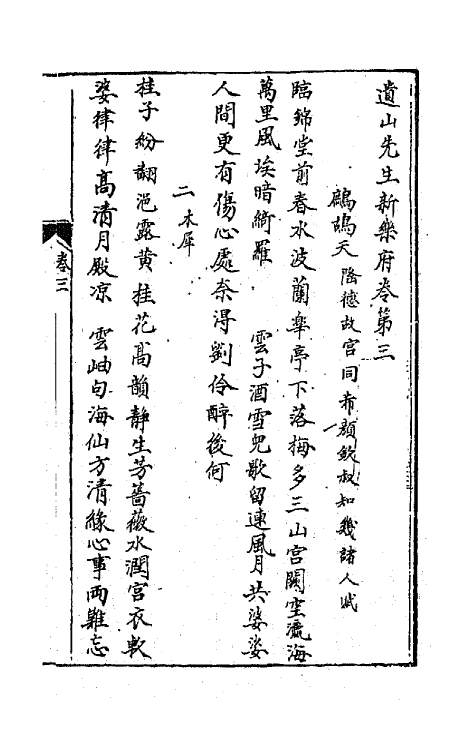 遺山先生新樂府卷第三
鷓鴣天 隆德故宮同希顔欽叔知幾諸人賦
臨錦堂前春水波蘭皋亭下落梅多三山宮闕空瀛海
萬里風埃暗綺羅 雲子酒雪兒歌留連風月共婆娑
人間更有傷心處奈得劉伶醉後何
二 木犀
桂子紛翻浥露黄桂花高韻靜生芳薔薇水潤宮衣軟
婆律律高清月殿凉 雲岫句海仙方清緣心事兩難忘
卷三